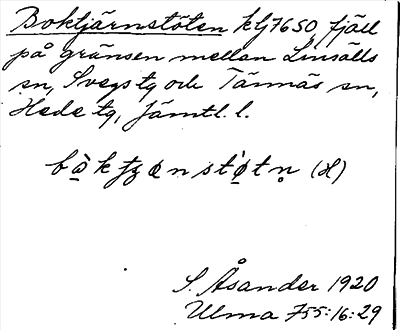 Boktjärnstöten klj7650, fjäll
på gränsen mellan Linsälls
sn, Svegs tg och Tännäs sn,
Hede tg, Jämtl. l.
(H)
S. Åsander 1920
Ulma 755:16:29